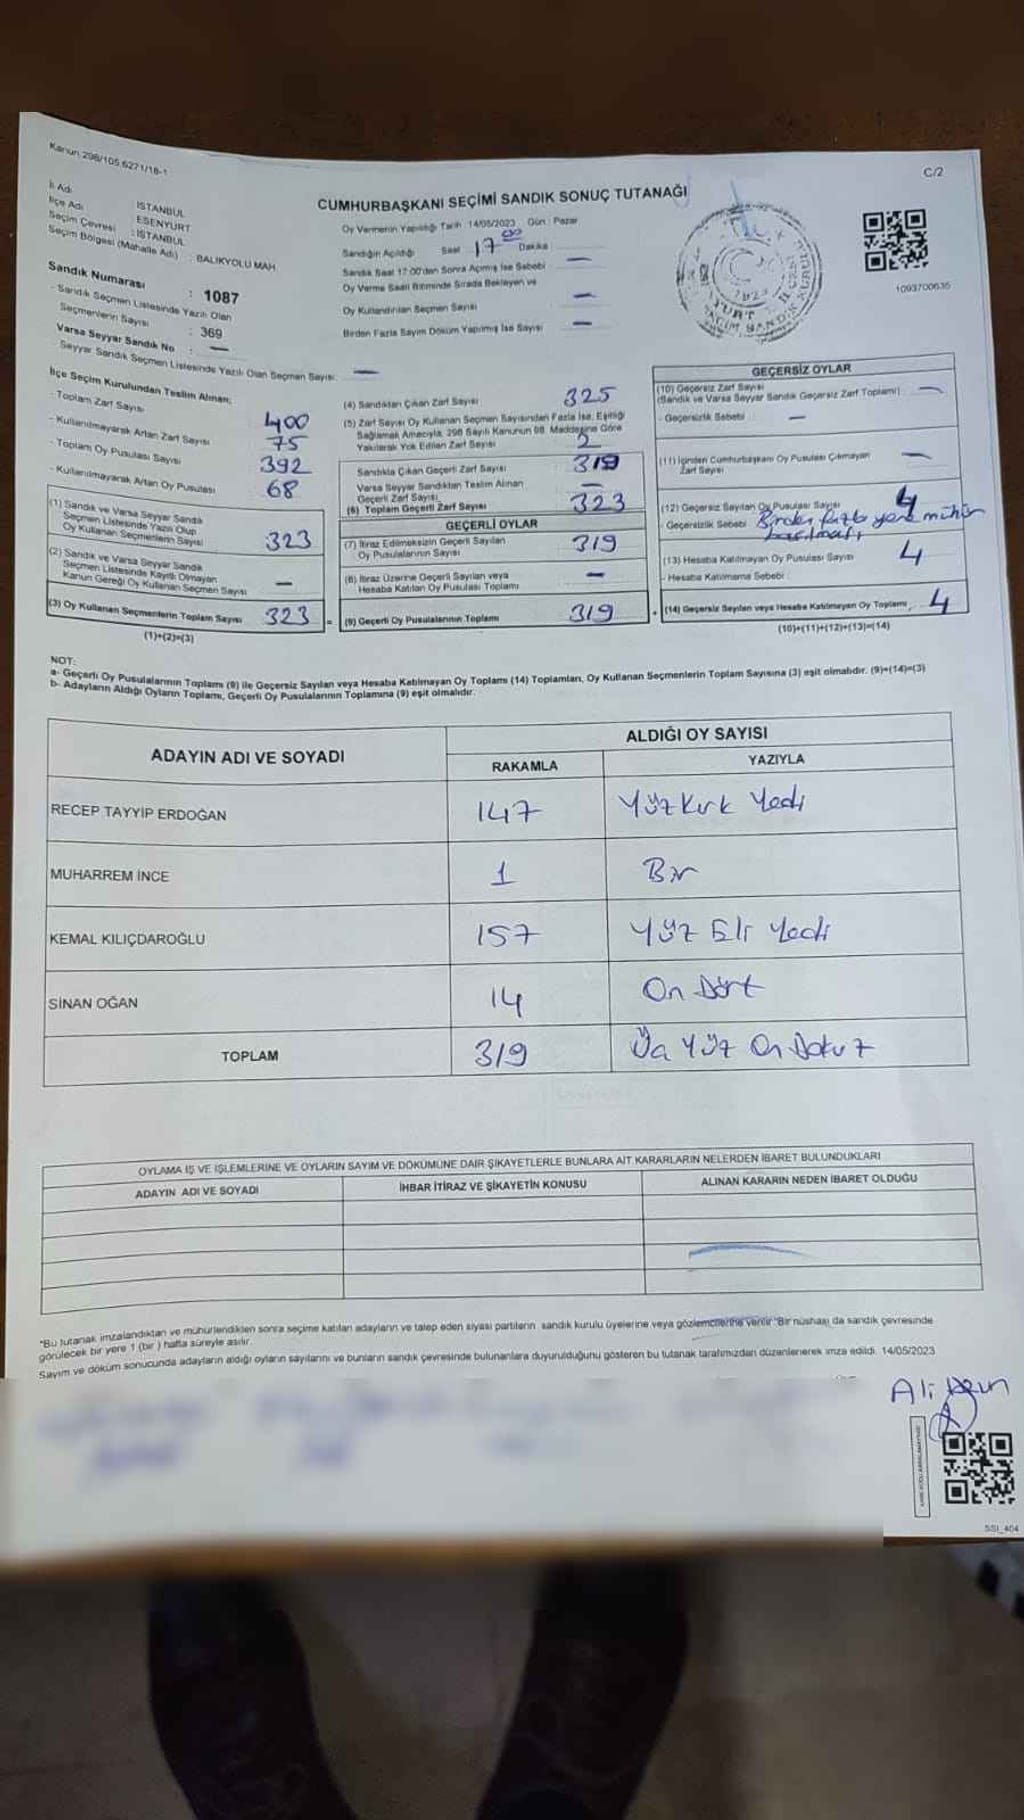 Kanun 298/105,6271/18-1
C/2
CUMHURBAŞKANI SEÇİMİ SANDIK SONUÇ TUTANAĞI
İl Adı : İSTANBUL
İlçe Adı : ESENYURT
Seçim Çevresi : İSTANBUL
Seçim Bölgesi (Mahalle Adı) : BALIKYOLU MAH.
Sandık Numarası : 1087
Sandık Seçmen Listesinde Yazılı Olan
Seçmenlerin Sayısı : 369
Varsa Seyyar Sandık No : —
Seyyar Sandık Seçmen Listesinde Yazılı Olan Seçmen Sayısı: —
Oy Vermenin Yapıldığı Tarih 14/05/2023 Gün : Pazar
Sandığın Açıldığı Saat 17 00 Dakika
Sandık Saat 17:00'den Sonra Açılmış İse Sebebi —
Oy Verme Saati Bitiminde Sırada Bekleyen ve
Oy Kullandırılan Seçmen Sayısı —
Birden Fazla Sayım Döküm Yapılmış İse Sayısı —
1093700635
İlçe Seçim Kurulundan Teslim Alınan;
- Toplam Zarf Sayısı 400
- Kullanılmayarak Artan Zarf Sayısı 75
- Toplam Oy Pusulası Sayısı 392
- Kullanılmayarak Artan Oy Pusulası 68
(1) Sandık ve Varsa Seyyar Sandık
Seçmen Listesinde Yazılı Olup
Oy Kullanan Seçmenlerin Sayısı 323
(2) Sandık ve Varsa Seyyar Sandık
Seçmen Listesinde Kayıtlı Olmayan
Kanun Gereği Oy Kullanan Seçmen Sayısı —
(3) Oy Kullanan Seçmenlerin Toplam Sayısı 323
(1)+(2)=(3)
(4) Sandıktan Çıkan Zarf Sayısı 325
(5) Zarf Sayısı Oy Kullanan Seçmen Sayısından Fazla İse, Eşitliği
Sağlamak Amacıyla, 298 Sayılı Kanunun 98. Maddesine Göre
Yakılarak Yok Edilen Zarf Sayısı 2
Sandıkta Çıkan Geçerli Zarf Sayısı 319
Varsa Seyyar Sandıktan Teslim Alınan
Geçerli Zarf Sayısı —
(6) Toplam Geçerli Zarf Sayısı 323
GEÇERLİ OYLAR
(7) İtiraz Edilmeksizin Geçerli Sayılan
Oy Pusulalarının Sayısı 319
(8) İtiraz Üzerine Geçerli Sayılan veya
Hesaba Katılan Oy Pusulası Toplamı —
= (9) Geçerli Oy Pusulalarının Toplamı 319
GEÇERSİZ OYLAR
(10) Geçersiz Zarf Sayısı
(Sandık ve Varsa Seyyar Sandık Geçersiz Zarf Toplamı) —
- Geçersizlik Sebebi : —
(11) İçinden Cumhurbaşkanı Oy Pusulası Çıkmayan
Zarf Sayısı —
(12) Geçersiz Sayılan Oy Pusulası Sayısı 4
- Geçersizlik Sebebi Birden fazla yere mühür
basılması
(13) Hesaba Katılmayan Oy Pusulası Sayısı 4
- Hesaba Katılmama Sebebi :
+ (14) Geçersiz Sayılan veya Hesaba Katılmayan Oy Toplamı 4
(10)+(11)+(12)+(13)=(14)
NOT:
a- Geçerli Oy Pusulalarının Toplamı (9) ile Geçersiz Sayılan veya Hesaba Katılmayan Oy Toplamı (14) Toplamları, Oy Kullanan Seçmenlerin Toplam Sayısına (3) eşit olmalıdır. (9)+(14)=(3)
b- Adayların Aldığı Oyların Toplamı, Geçerli Oy Pusulalarının Toplamına (9) eşit olmalıdır.
ADAYIN ADI VE SOYADI
ALDIĞI OY SAYISI
RAKAMLA YAZIYLA
RECEP TAYYİP ERDOĞAN 147 Yüz Kırk Yedi
MUHARREM İNCE 1 Bir
KEMAL KILIÇDAROĞLU 157 Yüz Elli Yedi
SİNAN OĞAN 14 On Dört
TOPLAM 319 Üç Yüz On Dokuz
OYLAMA İŞ VE İŞLEMLERİNE VE OYLARIN SAYIM VE DÖKÜMÜNE DAİR ŞİKAYETLERLE BUNLARA AİT KARARLARIN NELERDEN İBARET BULUNDUKLARI
ADAYIN ADI VE SOYADI İHBAR İTİRAZ VE ŞİKAYETİN KONUSU ALINAN KARARIN NEDEN İBARET OLDUĞU
*Bu tutanak imzalandıktan ve mühürlendikten sonra seçime katılan adayların ve talep eden siyasi partilerin sandık kurulu üyelerine veya gözlemcilerine verilir. Bir nüshası da sandık çevresinde
görülecek bir yere 1 (bir ) hafta süreyle asılır.
Sayım ve döküm sonucunda adayların aldığı oyların sayılarını ve bunların sandık çevresinde bulunanlara duyurulduğunu gösteren bu tutanak tarafımızdan düzenlenerek imza edildi. 14/05/2023
Ali
SSI_404